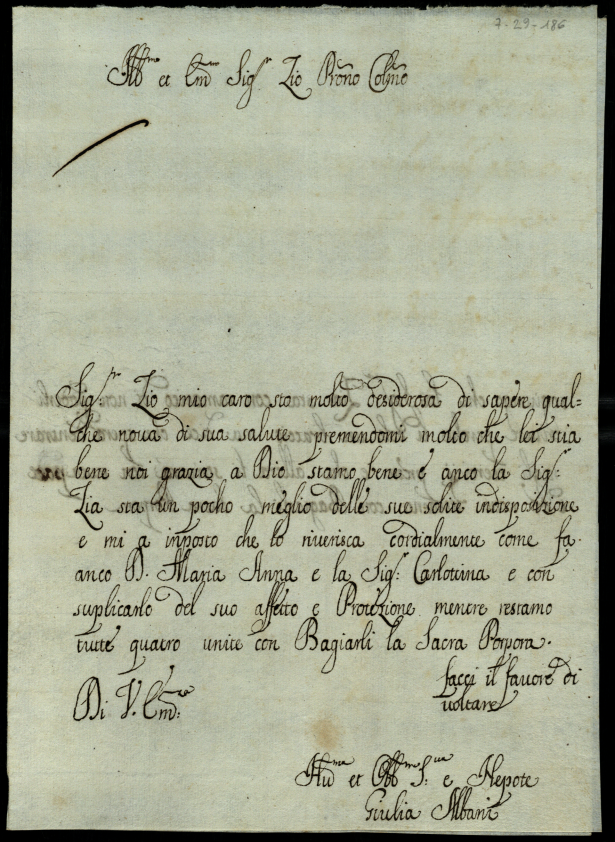 7-29-186
Ill.mo et Em.mo Sig.r Zio Prõno Colm̃o
Sig.r Zio mio caro sto molto desiderosa di sapere qual=
che noua di sua salute premendomi molto che lei stia
bene noi grazia a Dio stamo bene e anco la Sig:
Zia sta un pocho meglio delle sue solite indisposizione
e mi a inposto che lo riuerisca cordialmente come fa
anco D. Maria Anna e la Sig: Carlottina e con
suplicarlo del suo affetto e Protezione mentre restamo
tutte quatro unite con Bagiarli la Sacra Porpora.
facci il fauore di
uoltare
Di V. Em:za
Hu.ma et Obb.ma S:ua e Nepote
Giulia Albani